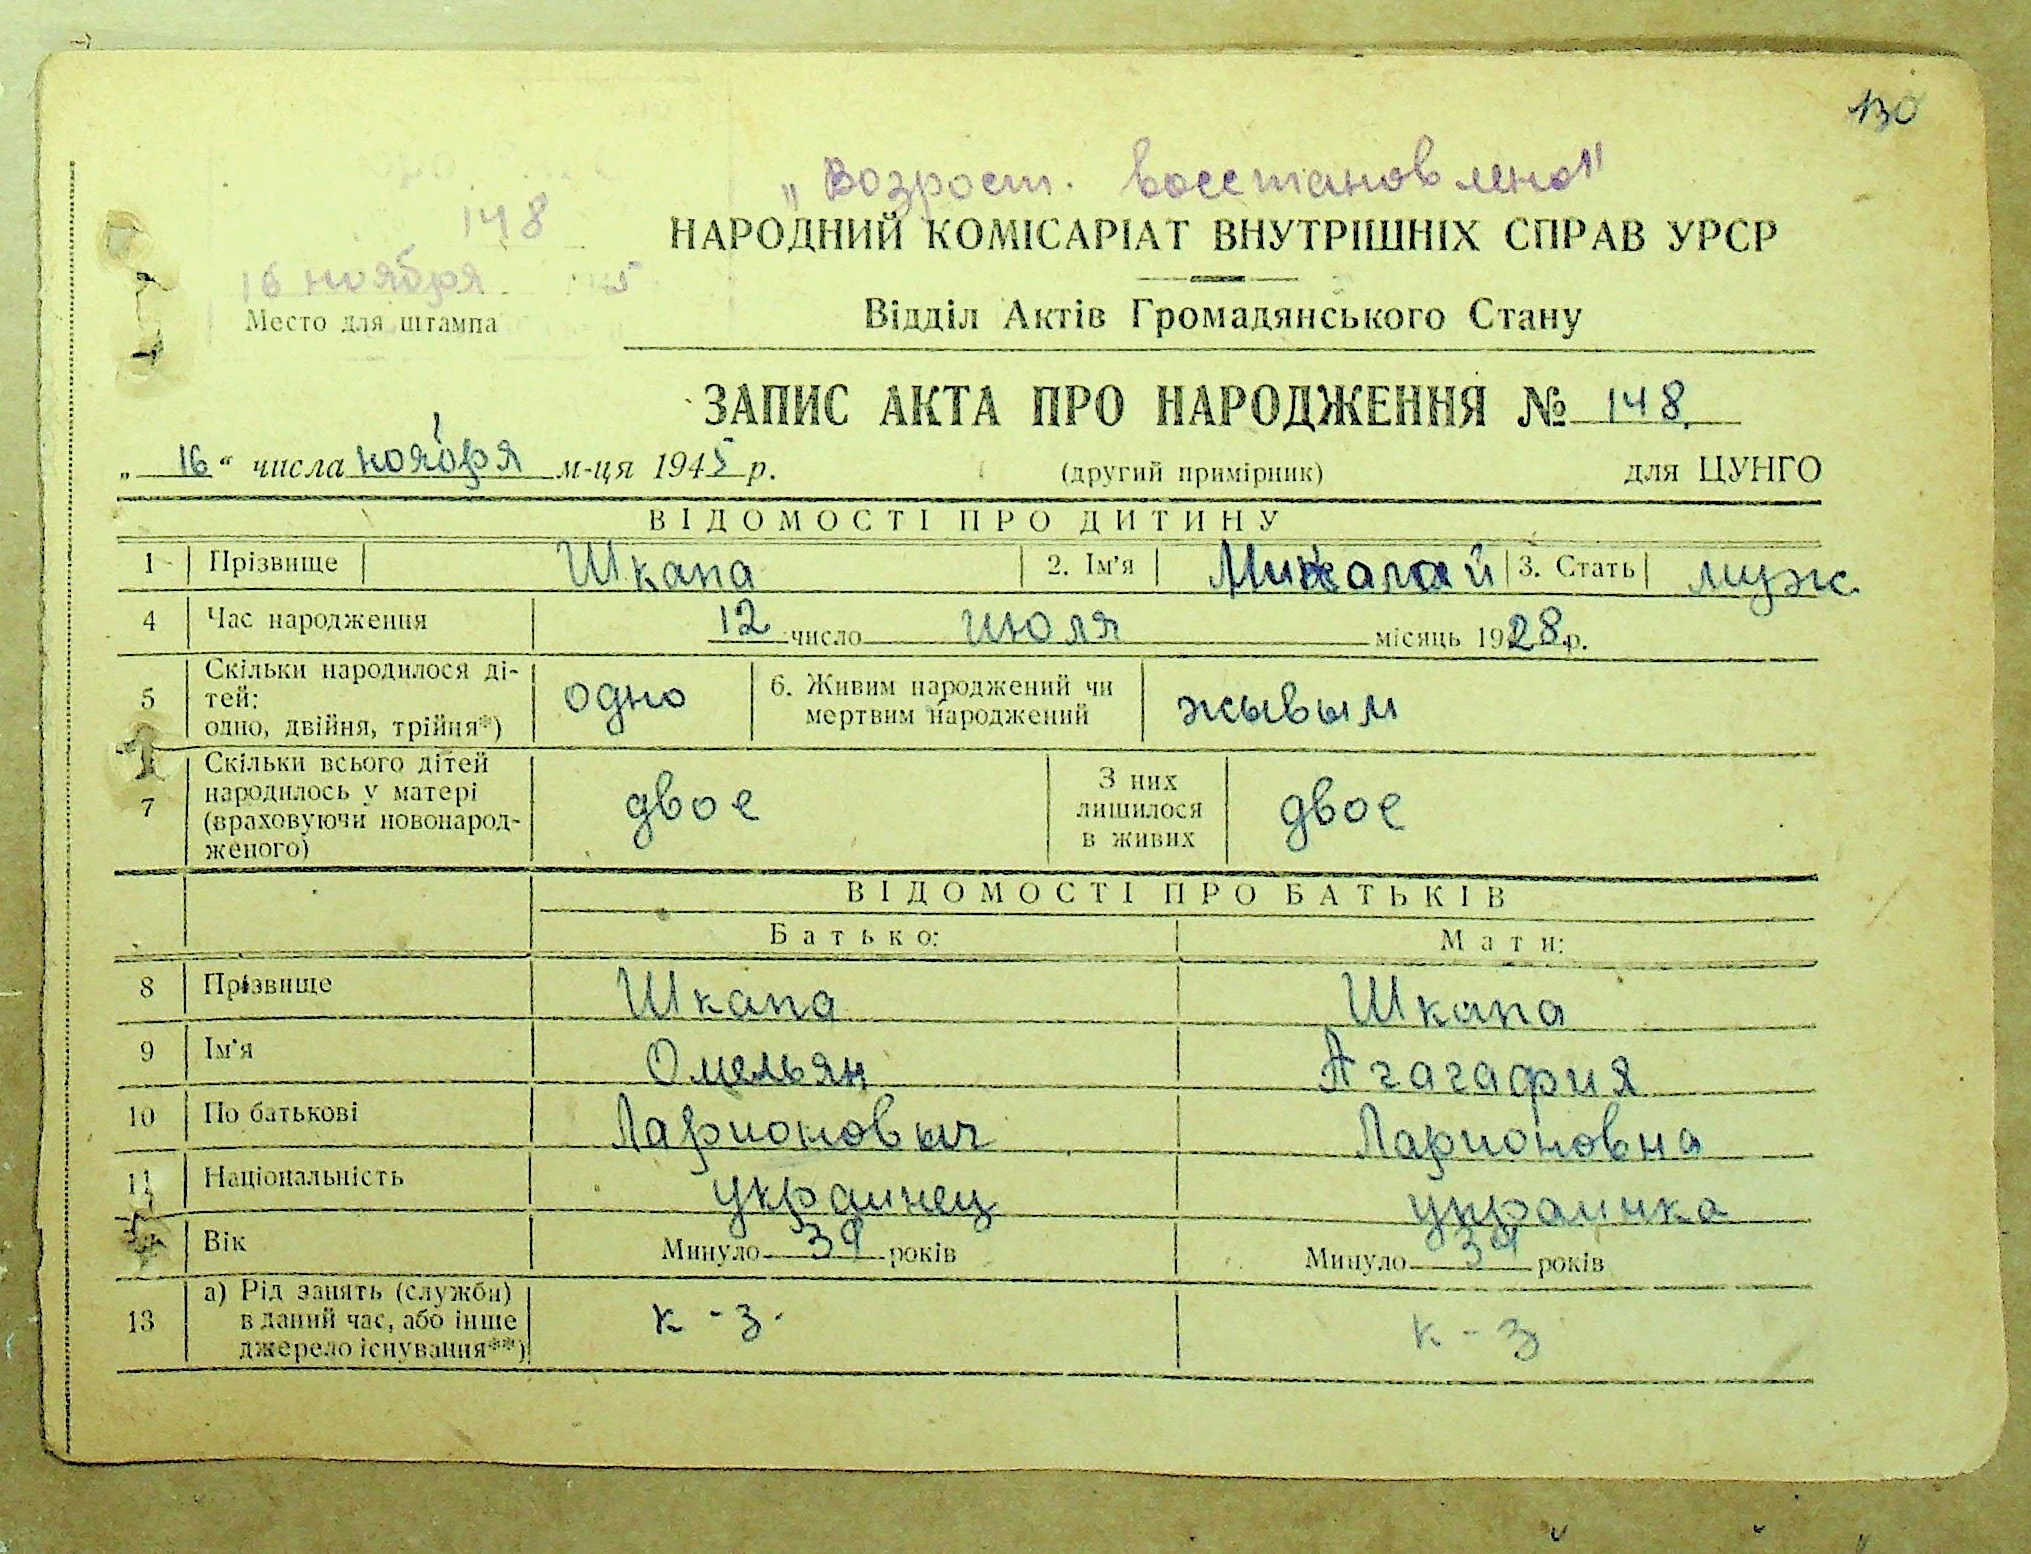 130
„Возрост. восстановлено"
148
НАРОДНИЙ КОМІСАРІАТ ВНУТРІШНІХ СПРАВ УРСР
16 ноября 5
Место для штампа
Відділ Актів Громадянського Стану
ЗАПИС АКТА ПРО НАРОДЖЕННЯ № 148
„16" числа ноября м-ця 1945 р. (другий примірник) для ЦУНГО
ВІДОМОСТІ ПРО ДИТИНУ
1 Прізвище Шкапа 2. Ім'я 3. Стать муж
4 Час народження 12 число июля місяць 1928 р.
5 Скільки народилося ді-
тей:
одно, двійня, трійня*) одно 6. Живим народжений чи
мертвим народжений жывым
7 Скільки всього дітей
народилось у матері
(враховуючи новонарод-
женого) двое З них
лишилося
в живих двое
ВІДОМОСТІ ПРО БАТЬКІВ
Батько: Мати:
8 Прізвище Шкапа Шкапа
9 Ім'я Омельян Агагафия
10 По батькові Ларионовыч Ларионовна
11 Національність украинец
Вік Минуло років Минуло років
13 а) Рід занять (служби)
в даний час, або інше
джерело існування**) к-з. к-з